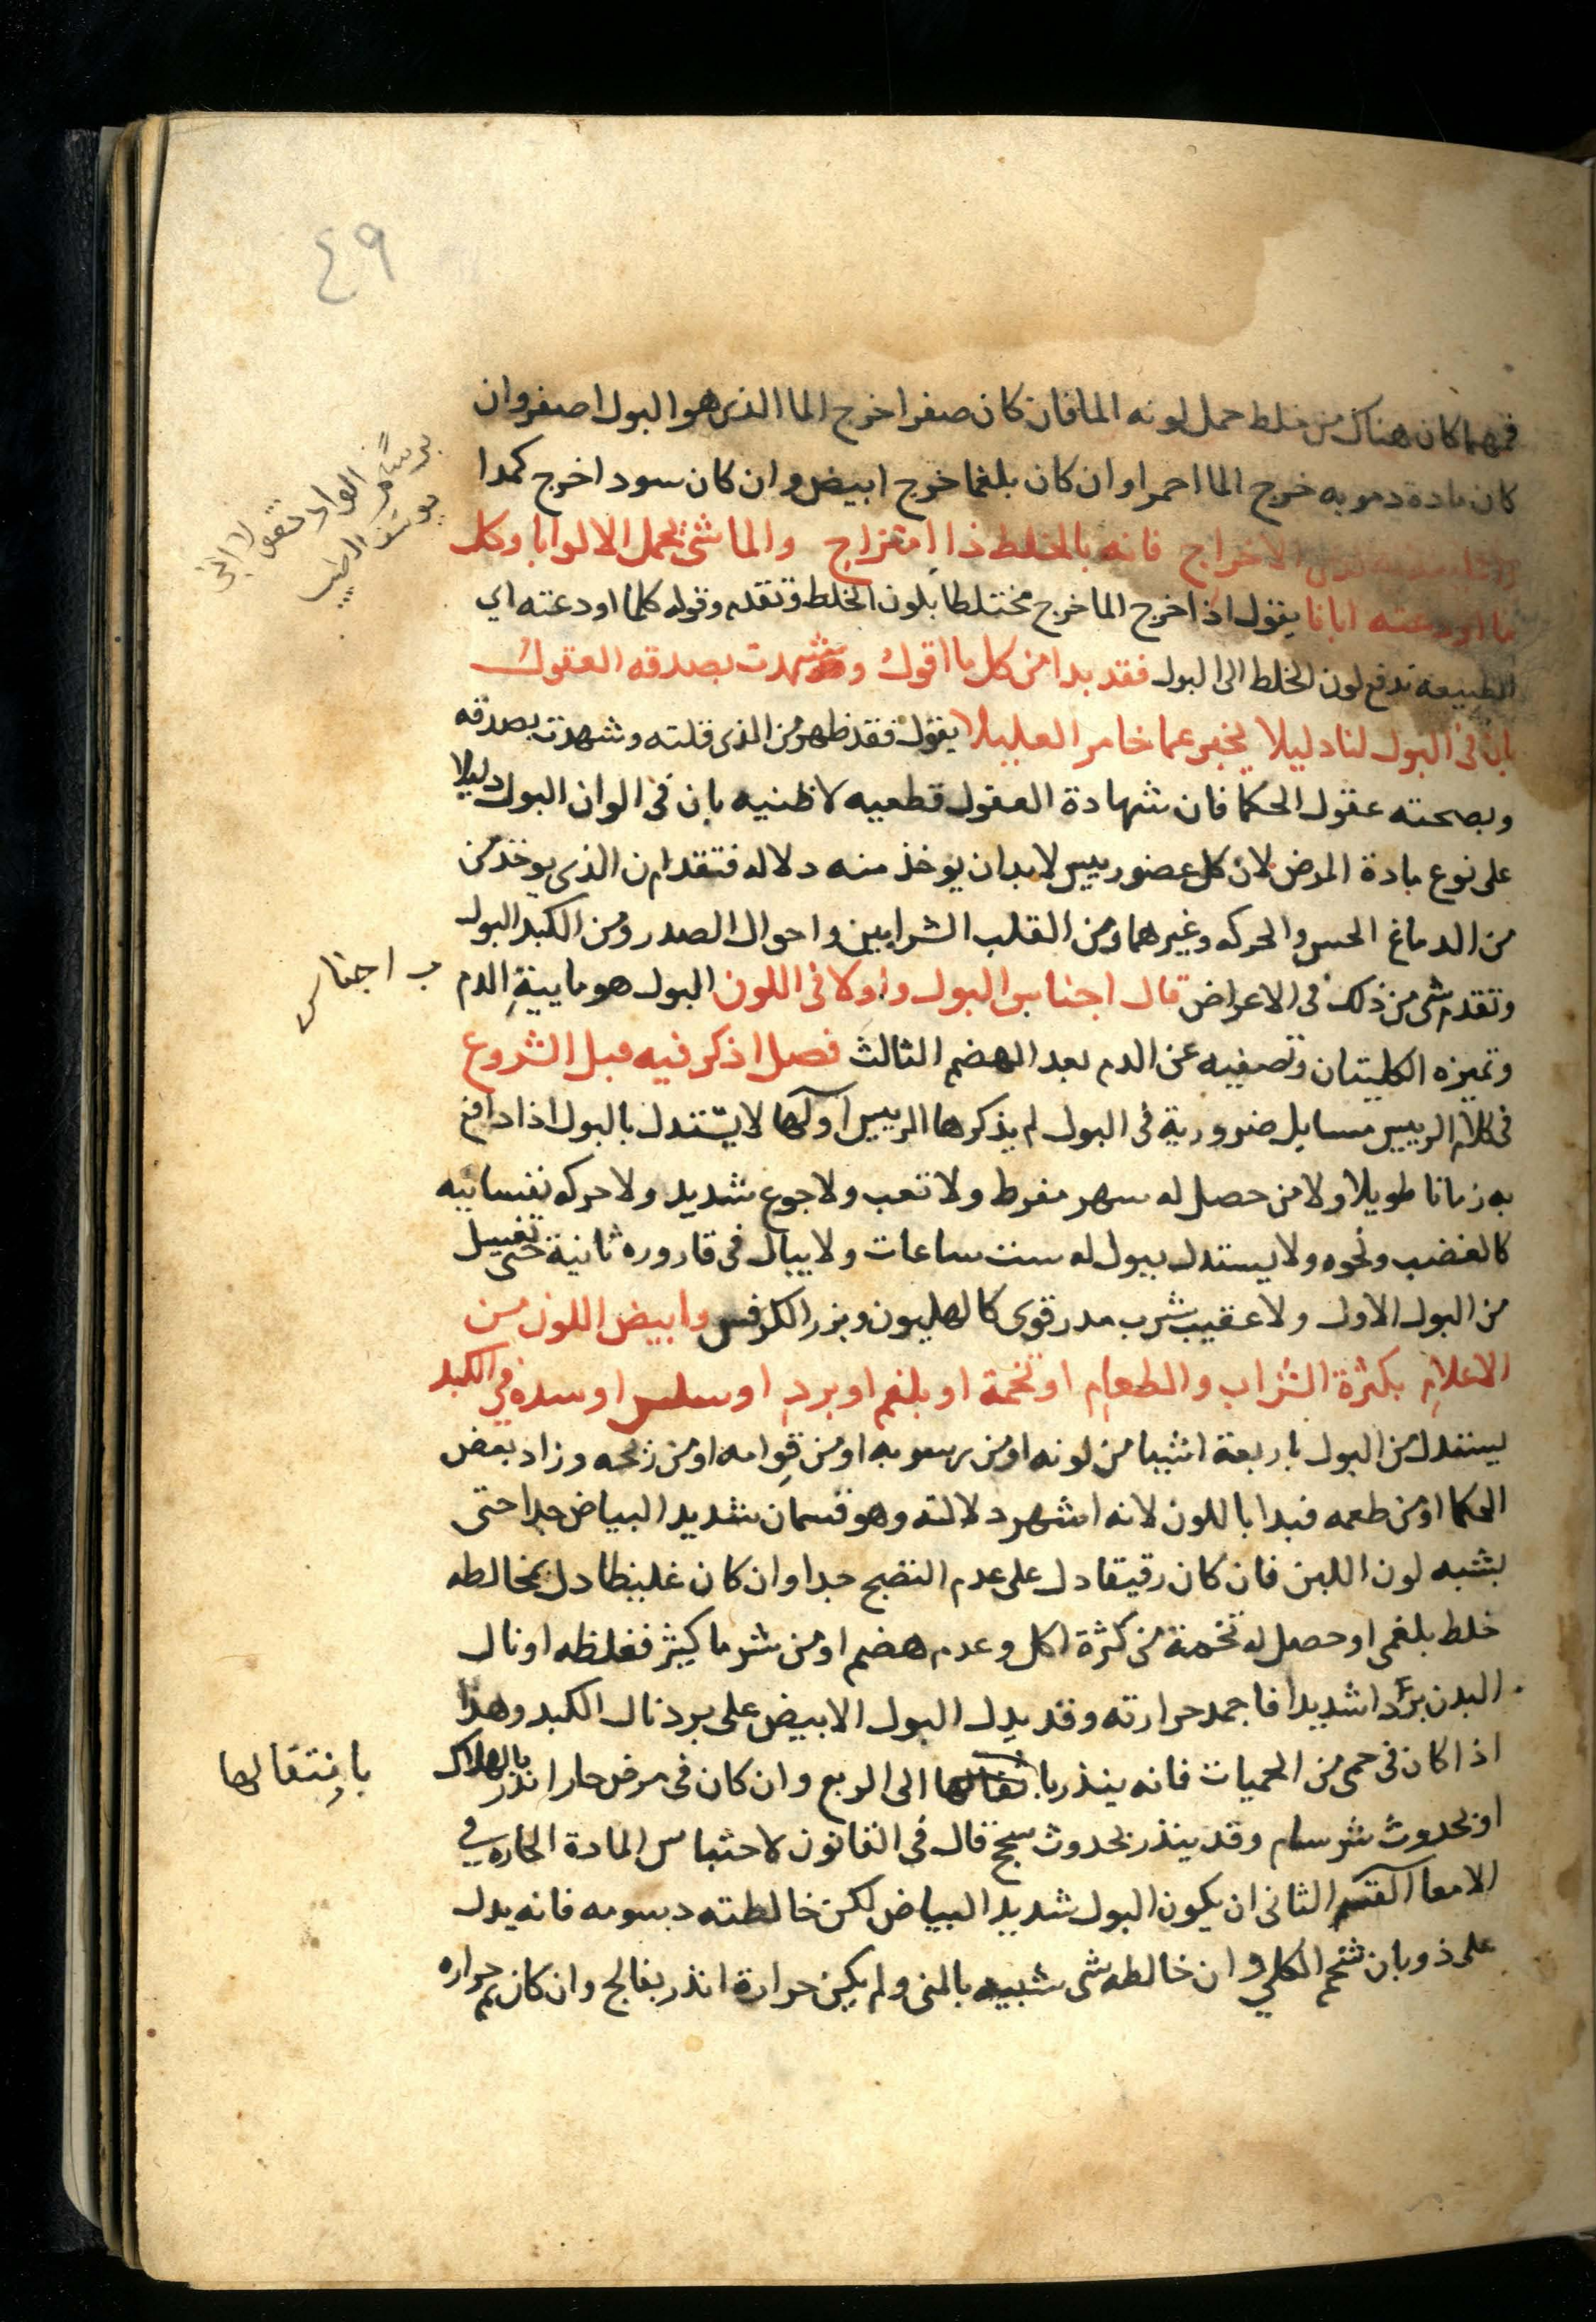 ٤٩
فمهما كان هناك من خلط حمل لونه الما فان كان صفرا خرج الما الذى هو البول اصفر وان
كان مادة دمويه خرج الما احمر او ان كان بلغما خرج ابيض وان كان سودا خرج كمدا
الاخراج فانه بالخلط ذا امتزاج والما شى يحمل الالوابا وكل
ما اودعته ابانا يقول اذا خرج الما خرج مختلطا بلون الخلط وتقدم وقوله كلما اودعته اي
الطبيعه تدفع لون الخلط الى البول فقد بدا من كل ما اقول وشهدت بصدقه العقول
بان فى البول لنا دليلا يخبر عما خامر العليلا يقول فقد ظهر من الذى قلته وشهدت بصدقه
وبصحته عقول الحكما فان شهادة العقول قطعيه لا ظنيه بان فى الوان البول دليلا
على نوع مادة المرض لان كل عضو رييس لابد ان يوخذ منه دلاله فتقدم ان الذى يوخذ من
من الدماغ الحس والحركه وغيرهما ومن القلب الشرايين واحوال الصدر ومن الكبد البول
وتقدم شى من ذلك فى الاعراض قال اجناس البول واولا فى اللون البول هو مايية الدم
وتميزه الكليتان وتصفيه عن الدم بعد الهضم الثالث فصل اذكر فيه قبل الشروع
فى كلام الرييس مسايل ضرورية فى البول لم يذكرها الرييس اولها لا يستدل بالبول اذا دافع
به زمانا طويلا ولا من حصل له سهر مفرط ولا تعب ولا جوع شديد ولا حركه نفسانيه
كالغضب ونحوه ولا يستدل ببول له ست ساعات ولا يبال فى قاروره ثانية حتى تغسل
من البول الاول ولا عقيب شرب مدر قوى كالهليون وبزر الكرفس وابيض اللون من
الاعلام بكثرة الشراب والطعام او تخمة او بلغم او برد او سلس او سده في الكبد
يستدل من البول باربعة اشيا من لونه او من رسوبه او من قوامه او من ريحه وزاد بعض
الحكما او من طعمه فبدا باللون لانه اشهر دلالته وهو قسمان شديد البياض جدا حتى
يشبه لون اللبن فان كان رقيقا دل على عدم النضج جدا وان كان غليظا دل بمخالطه
خلط بلغمى او حصل له تخمة من كثرة اكل وعدم هضم او من شرب ما كثير فغلظه او نال
البدن بردا شديدا فاجمد حرارته وقد يدل البول الابيض على برد نال الكبد وهذا
اذا كان فى حمى من الحميات فانه ينذر بانتقالها الى الربع وان كان فى مرض حار انذر بالهلاك
او بحدوث شرسام وقد ينذر بحدوث سحج قال فى القانون لاحتباس المادة الحاره في
الامعا القسم الثانى ان يكون البول شديد البياض لكن خالطته دسومه فانه يدل
على ذوبان شحم الكلي وان خالطه شى شبيه بالمنى ولم يكن حرارة انذر بفالج وان كان ثم حراره
ب اجناس
بانتقالها